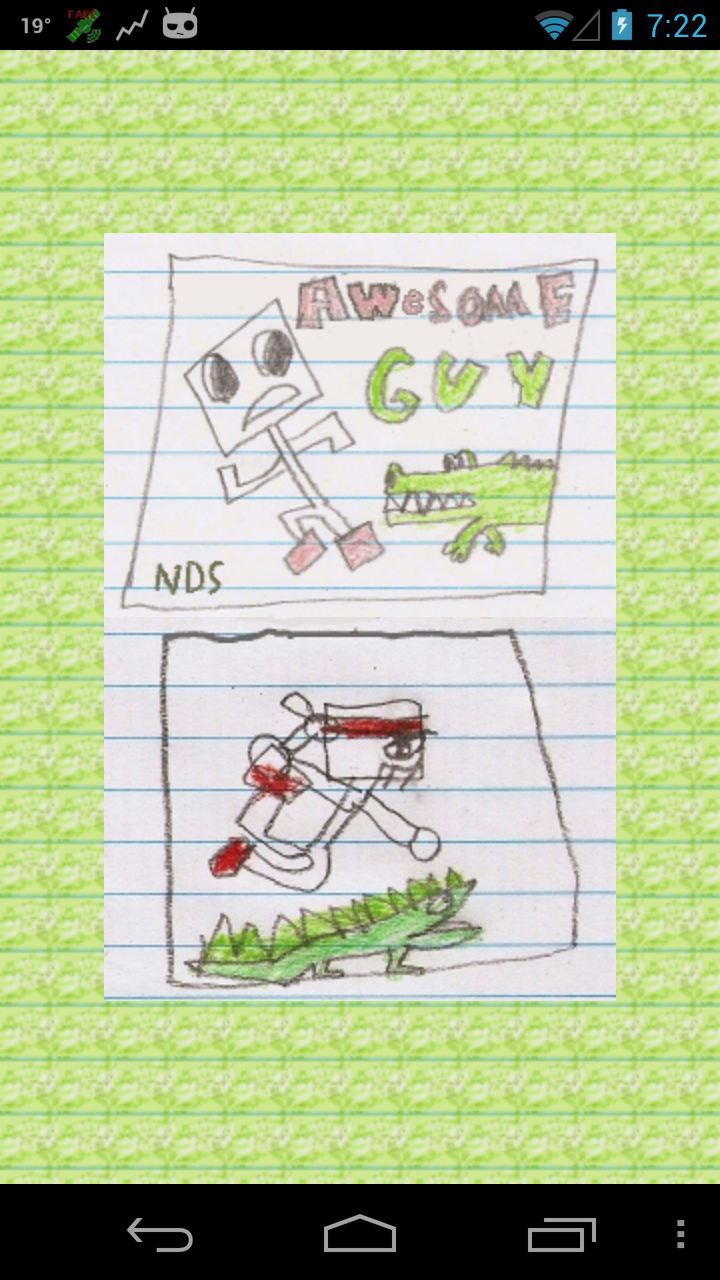 19° FAKE 7:22
AWeSOME
GUY
NDS